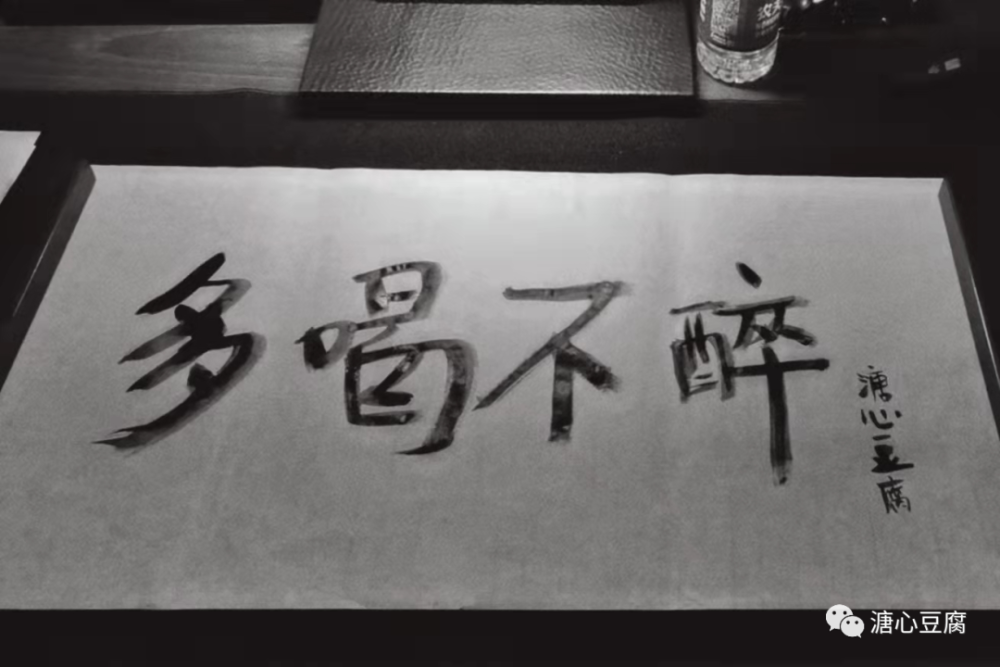 多喝不醉
溏心豆腐
溏心豆腐